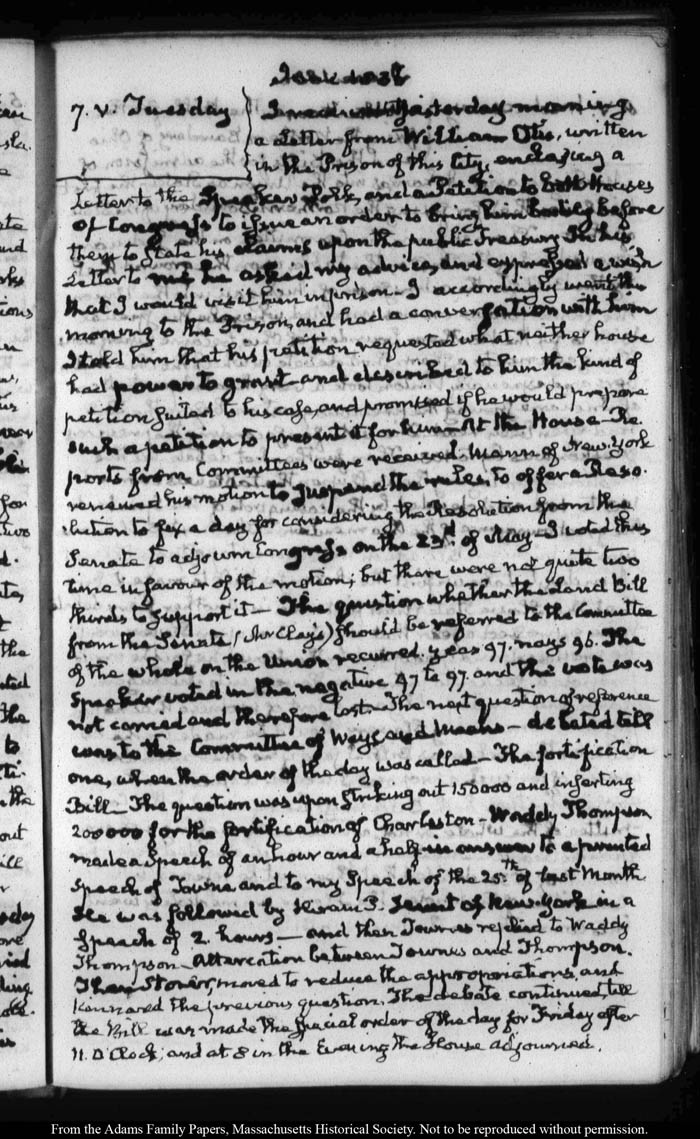 7. V. Tuesday
I received yesterday morning
a Letter from William Otis, written
in the Prison of this City, enclosing a
Letter to the Speaker Polk, and a Petition to both Houses
of Congress to issue an order to bring him bodily before
them to State his claims upon the public Treasury. In his
Letter to me he asked my advice, and expressed a wish
that I would visit him in prison. I accordingly went this
morning to the Prison, and had a conversation with him
I told him that his petition requested what neither house
had power to grant and described to him the kind of
petition suited to his case, and promised if he would prepare
such a petition to present it for him—At the House—Re
ports from Committees were received. Mann of New-York
renewed his motion to suspend the rules, to offer a Reso-
lution to fix a day for considering the Resolution from the
Senate to adjourn Congress on the 23d. of May—I voted this
time in favour of the motion; but there were not quite two
thirds to support it—The question whether the Land Bill
from the Senate (Mr Clay's) should be referred to the Committee
of the whole on the Union recurred. yeas 97. nays 96. The
Speaker voted in the negative 97 to 97. and the vote was
not carried and therefore lost—The next question of reference
was to the Committee of Ways and Means—debated till
one, when the order of the day was called—The fortification
Bill—The question was upon striking out 150000 and inserting
200000 for the fortification of Charleston—Waddy Thompson
made a Speech of an hour and a half in answer to a printed
Speech of Towns and to my Speech of the 25th of last Month
He was followed by Hiram P. Hunt of New-York in a
Speech of 2. hours—and then Townes replied to Waddy
Thompson—Altercation between Townes and Thompson.
Then Storer, moved to reduce the appropriations, and
Kinnard the previous question. The debate continued, till
the Bill was made the special order of the day for Friday after
11. O'Clock; and at 8 in the Evening the House adjourned.
From the Adams Family Papers, Massachusetts Historical Society. Not to be reproduced without permission.